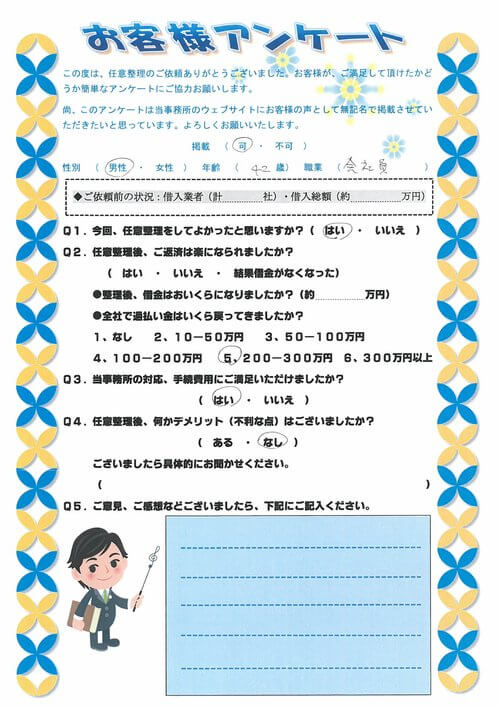 お客様アンケート
この度は、任意整理のご依頼ありがとうございました。お客様が、ご満足して頂けたかど
うか簡単なアンケートにご協力お願いします。
尚、このアンケートは当事務所のウェブサイトにお客様の声として無記名で掲載させてい
ただきたいと思っています。よろしくお願いいたします。
掲載 ( 可 ・ 不可 )
性別 ( 男性 ・ 女性 ) 年齢 ( 42 歳) 職業 ( 会社員 )
◆ご依頼前の状況:借入業者(計............社)・借入総額(約............万円)
Q1.今回、任意整理をしてよかったと思いますか?( はい ・ いいえ )
Q2.任意整理後、ご返済は楽になられましたか?
( はい ・ いいえ ・ 結果借金がなくなった)
●整理後、借金はおいくらになりましたか?(約............万円)
●全社で過払い金はいくら戻ってきましたか?
1、なし 2、10-50万円 3、50-100万円
4、100-200万円 5、200-300万円 6、300万円以上
Q3.当事務所の対応、手続費用にご満足いただけましたか?
( はい ・ いいえ )
Q4.任意整理後、何かデメリット(不利な点)はございましたか?
( ある ・ なし )
ございましたら具体的にお聞かせください。
( )
Q5.ご意見、ご感想などございましたら、下記にご記入ください。